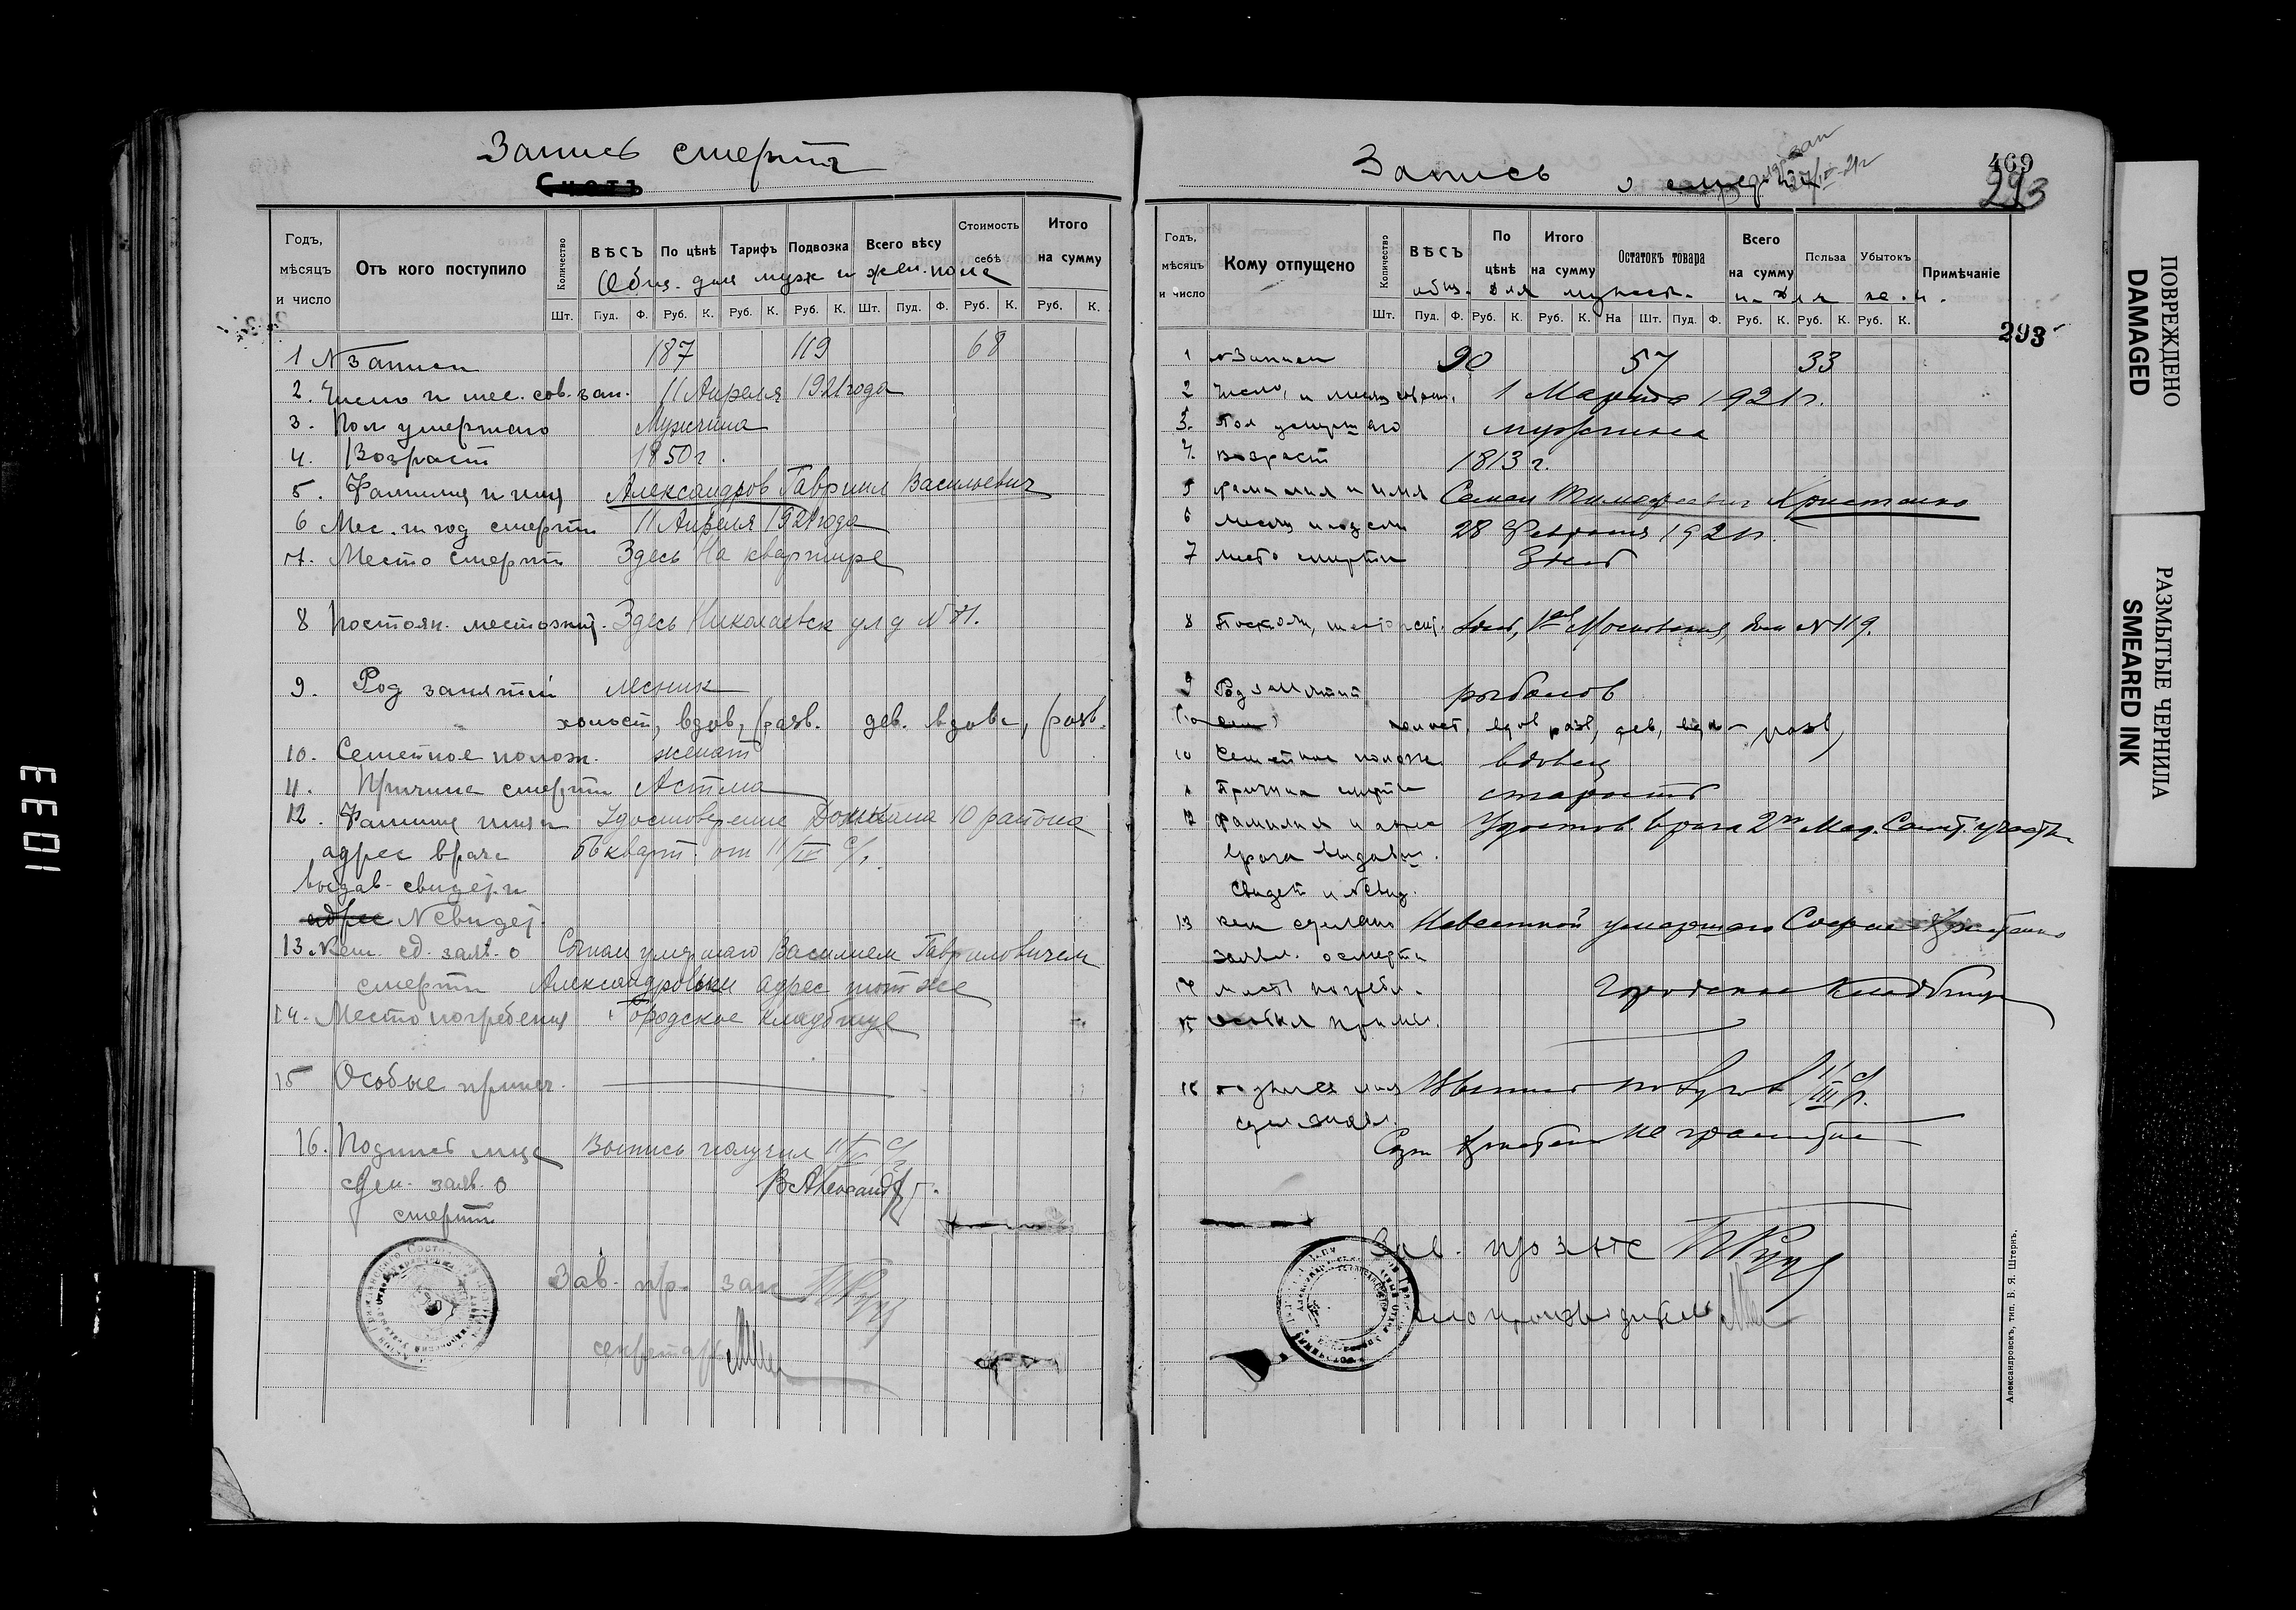 Запись смерти
Счетъ
Годъ, мѣсяцъ и число
Отъ кого поступило
Количество
ВѢСЪ
По цѣнѣ
Тарифъ
Подвозка
Всего вѣсу
Стоимость себѣ
Итого на сумму
Общ. для муж и жен. пола
Шт. Пуд. Ф. Руб. К. Руб. К. Руб. К. Шт. Пуд. Ф. Руб. К. Руб. К.
1 N записи 187 119 68
2. Число и мес. сов. зап. 11 Апреля 1921 года
3. Пол умершаго Мужчина
4. Возраст 1850 г.
5. Фамилия и имя Александров Гавриил Васильевич
6 Мес. и год смерти 11 Апреля 1921 года
7. Место смерти Здесь На квартире
8 Постоян. местожит. Здесь Николаевск ул д N
9. Род занятий лесник
холост, вдов, разв. дев. вдова, разв.
10. Семейное полож. женат
11. Причина смерти Астма
12. Фамилия имя и Удостоверение Домкома 10 района
адрес врача кварт. от 11/IV с/г.
выдав. свидет. и
адрес N свидет.
13. Кем сд. заяв. о Сыном умершаго Василием Гавриловичем
смерти Александровым адрес тот же
14. Место погребения Городское кладбище
15 Особые примеч.
16. Подпись лица Выпись получил 11/IV с/г
сдел. заяв. о
смерти
Зав. пр. зап
секретарь
Запись о смерти
469
293
Годъ, мѣсяцъ и число
Кому отпущено
Количество
ВѢСЪ
По цѣнѣ
Итого на сумму
Остатокъ товара
Всего на сумму
Польза
Убытокъ
Примѣчаніе
общ. для мужск. и для
Шт. Пуд. Ф. Руб. К. Руб. К. На Шт. Пуд. Ф. Руб. К. Руб. К. Руб. К.
293
1 N записи 90 57 33
2 Число, и месяц 1 Марта 1921 г.
3. Пол умершаго мужчина
4. возраст 1813 г.
5 фамилия и имя Семен Тимофеевич Христенко
6 месяц и год смерти 28 Февраля 1921 г.
7 место смерти Здесь
8 Здесь, Московская, дом N 119.
9 Род занятий рыболов
холост, вдов разв, дев, вдов разв,
10 Семейное полож. вдовец
Причина смерти старость
12 фамилия и имя Удостов. врача 2го Мед. Санит. участка
врача выдавш.
свидет и N свид.
13 кем сделано Невесткой умершаго Софией Христенко
заявл. о смерти
14 место погребл. Городское кладбище
15 Особыя примеч.
16 подпись лица
сдел. заявл.
Зав. про запс
Делопроизводитель
Александровскъ, тип. Б. Я. Штернъ.
ПОВРЕЖДЕНО
DAMAGED
РАЗМЫТЫЕ ЧЕРНИЛА
SMEARED INK
1033